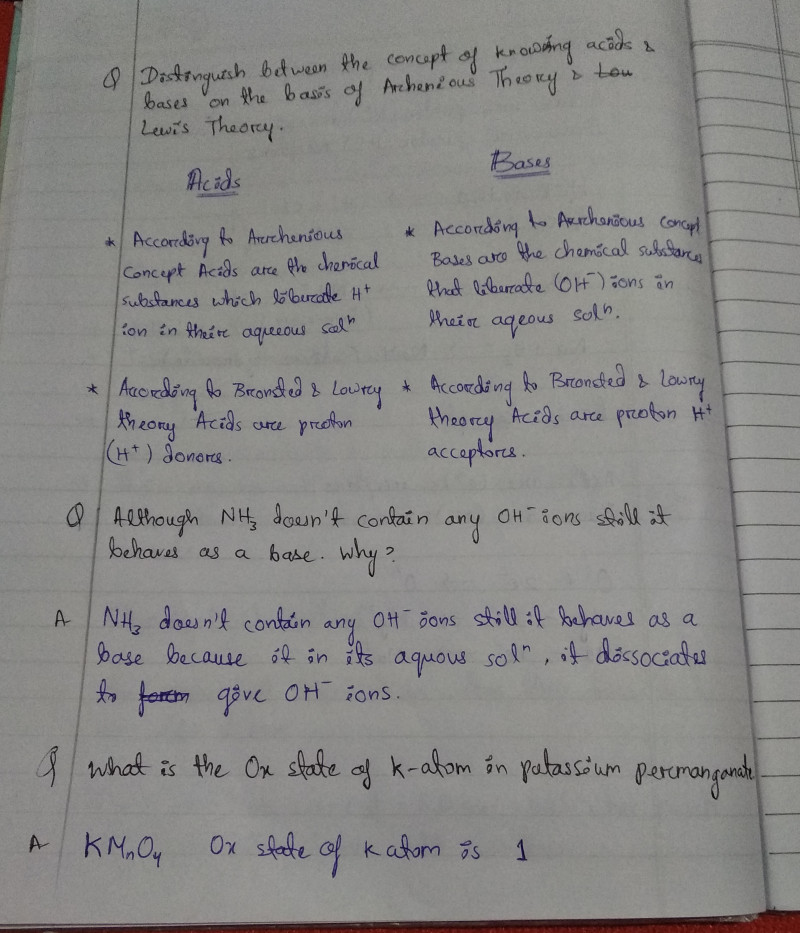 Q Distinguish between the concept of knowing acids &
bases on the basis of Archenious Theory & Lou
Lewis Theory.
Acids
* According to Arrchenious
Concept Acids are the chemical
substances which liberate H⁺
ion in their aqueous solⁿ
* According to Bronsted & Lowry
theory Acids are proton
(H⁺) donors.
Bases
* According to Arrchenious Concept
Bases are the chemical substances
that liberate (OH⁻) ions in
their aqeous solⁿ.
* According to Bronsted & Lowry
theory Acids are proton H⁺
acceptors.
Q Although NH₃ doesn't contain any OH⁻ ions still it
behaves as a base. Why?
A NH₃ doesn't contain any OH⁻ ions still it behaves as a
base because it in its aquous solⁿ, it dissociates
to form give OH⁻ ions.
Q What is the Ox state of K-atom in patassium permanganate
A KMnO₄ Ox state of K atom is 1